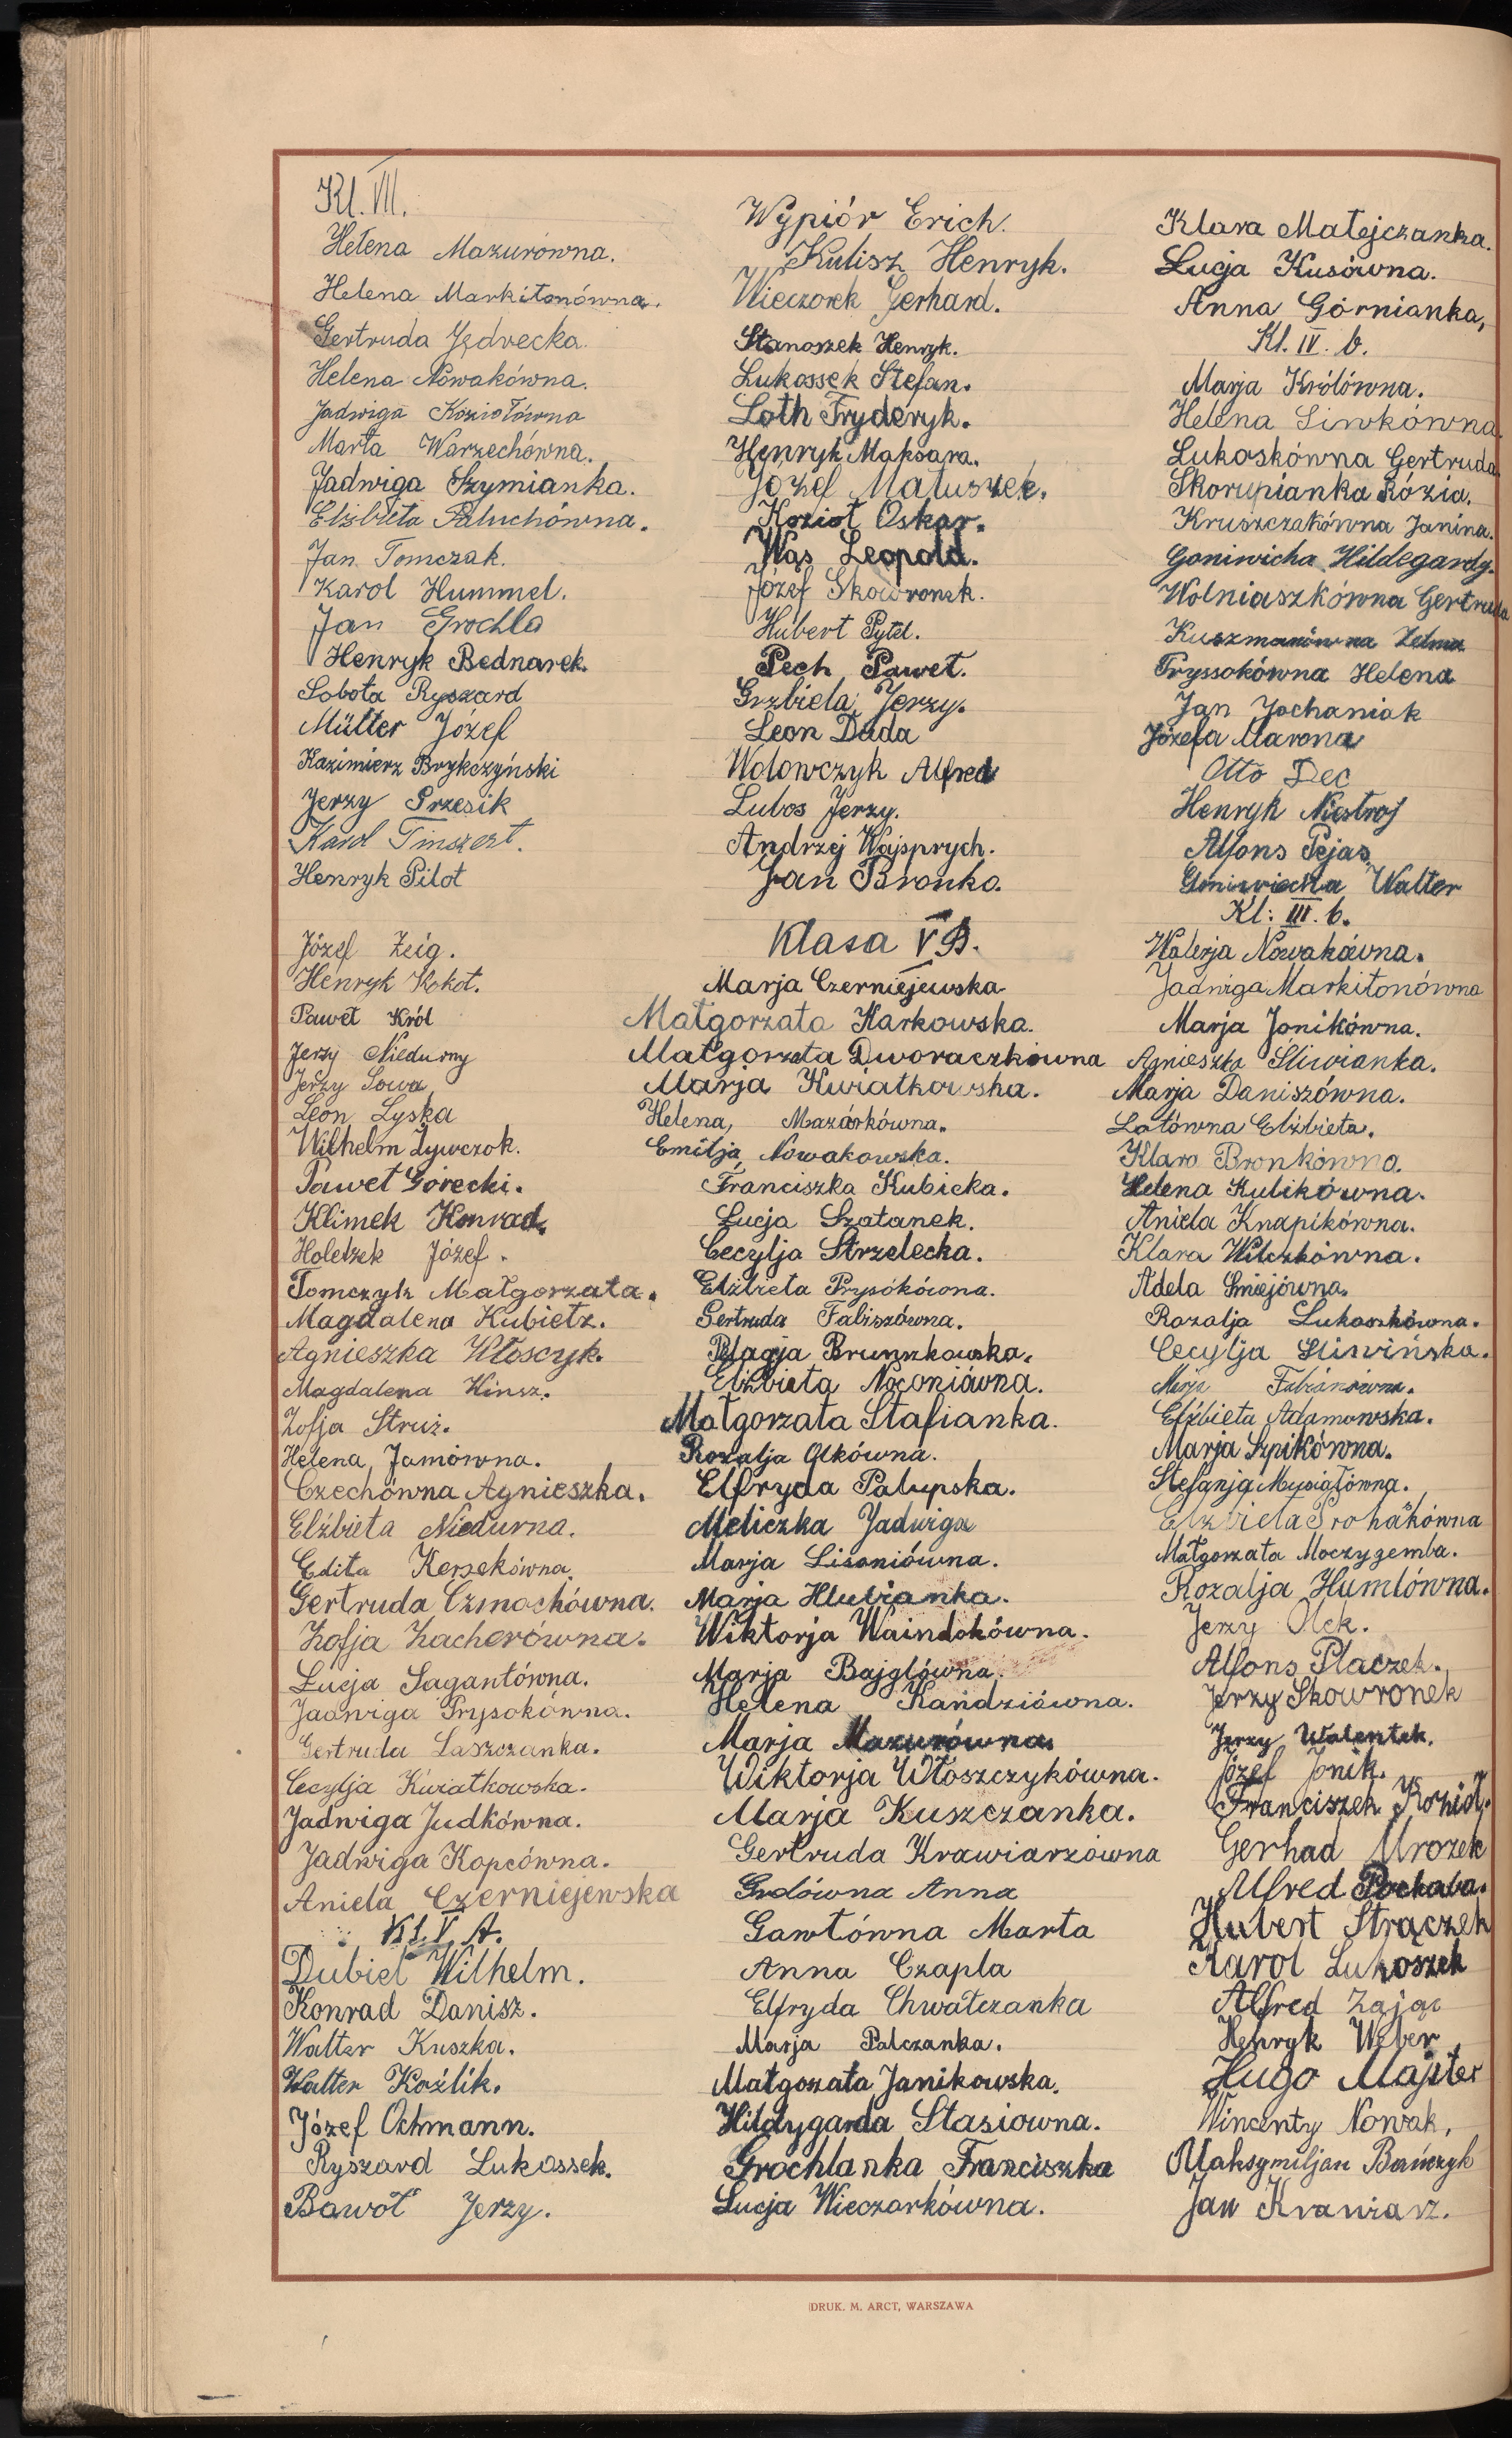 Kl. VII.
Helena Mazurówna.
Helena Markitonówna.
Gertruda Jędrecka.
Helena Nowakówna.
Jadwiga Koziołówna
Marta Warzechówna.
Jadwiga Szymianka.
Elżbieta Paluchówna.
Jan Tomczak.
Karol Hummel.
Jan Grochla
Henryk Bednarek.
Sobota Ryszard
Müller Józef
Kazimierz Brykczyński
Jerzy Przesik
Karol Tinszert.
Henryk Pilot
Józef Zeig.
Henryk Kokot.
Paweł Król
Jerzy Niedurny
Jerzy Sowa
Leon Lyska
Wilhelm Żywczok.
Paweł Górecki.
Klimek Konrad.
Holetzek Józef.
Tomczyk Małgorzata.
Magdalena Kubietz.
Agnieszka Włoscyk.
Magdalena Hinsz.
Zofja Struż.
Helena Jamówna.
Czechówna Agnieszka.
Elżbieta Niedurna.
Edita Kerzekówna.
Gertruda Czmochówna.
Zofja Zacherówna.
Łucja Sagantówna.
Jadwiga Prysokówna.
Gertruda Laszczanka.
Cecylja Kwiatkowska.
Jadwiga Judkówna.
Jadwiga Kopcówna.
Aniela Czerniejewska
Kl. V A.
Dubiel Wilhelm.
Konrad Danisz.
Walter Kuszka.
Walter Koźlik.
Józef Ochmann.
Ryszard Lukossek.
Bawoł Jerzy.
Wypiór Erich.
Kulisz Henryk.
Wieczorek Gerhard.
Stanoszek Henryk.
Lukossek Stefan.
Loth Fryderyk.
Henryk Maksara.
Józef Matuszek.
Kozioł Oskar.
Wąs Leopold.
Józef Skowronek.
Hubert Pytel.
Pech Paweł.
Grzbiela Jerzy.
Leon Duda
Wolowczyk Alfred
Lubos Jerzy.
Andrzej Wajsprych.
Jan Bronko.
Klasa V B.
Marja Czerniejewska
Małgorzata Karkowska.
Małgorzata Dworaczkówna
Marja Kwiatkowska.
Helena, Mazurkówna.
Emilja Nowakowska.
Franciszka Kubicka.
Łucja Szatanek.
Cecylja Strzelecka.
Elżbieta Prysokówna.
Gertruda Faliszówna.
Pelagja Brunszkowska.
Elżbieta Nogoniówna.
Małgorzata Stafianka.
Rozalja Olkówna.
Elfryda Palupska.
Meliczka Jadwiga
Marja Lisoniówna.
Marja Hlubianka.
Wiktorja Waindokówna.
Marja Bajglówna.
Helena Kandziówna.
Marja Mazurówna
Wiktorja Włoszczykówna.
Marja Kuszczanka.
Gertruda Krawiarzówna
Grdówna Anna
Gawłówna Marta
Anna Czapla
Elfryda Chwałczanka
Marja Palczanka.
Małgozata Janikowska.
Hildygarda Stasiowna.
Grochlanka Franciszka
Łucja Wieczorkówna.
Klara Matejczanka.
Łucja Kusówna.
Anna Górnianka,
Kl. IV. b.
Marja Królówna.
Helena Siwkówna
Lukoskówna Gertruda
Skorupianka Rózia.
Kruszczakówna Janina.
Goniwicha Hildegardy.
Wolniaszkówna Gertruda
Kuszmanówna Zelma
Pryssokówna Helena
Jan Jochaniak
Józefa Marona
Otto Dec
Henryk Niestroj
Alfons Pejas
Goniwiecha Walter
Kl: III. b.
Walerja Nowakówna.
Jadwiga Markitonówna
Marja Jonikówna.
Agnieszka Śliwianka.
Marja Daniszówna.
Latówna Elżbieta.
Klara Bronkówna.
Helena Kulikówna.
Aniela Knapikówna.
Klara Wilczkówna.
Adela Smiejówna.
Rozalja Lukoszkówna.
Cecylja Śliwińska.
Marja Fabianówna.
Elżbieta Adamowska.
Marja Szpikówna.
Stefanja Musiałówna.
Elżbieta Prohakówna
Małgorzata Moczygemba.
Rozalja Humlówna.
Jerzy Olek.
Alfons Placzek.
Jerzy Skowronek
Jerzy Walentek.
Józef Jonik.
Franciszek Kozioł.
Gerhad Mrozek
Alfred Pochaba.
Hubert Strączek
Karol Lukoszek
Alfred Zając
Henryk Weber
Hugo Majster
Wincenty Nowak,
Maksymiljan Bańczyk
Jan Krawiarz.
DRUK. M. ARCT, WARSZAWA